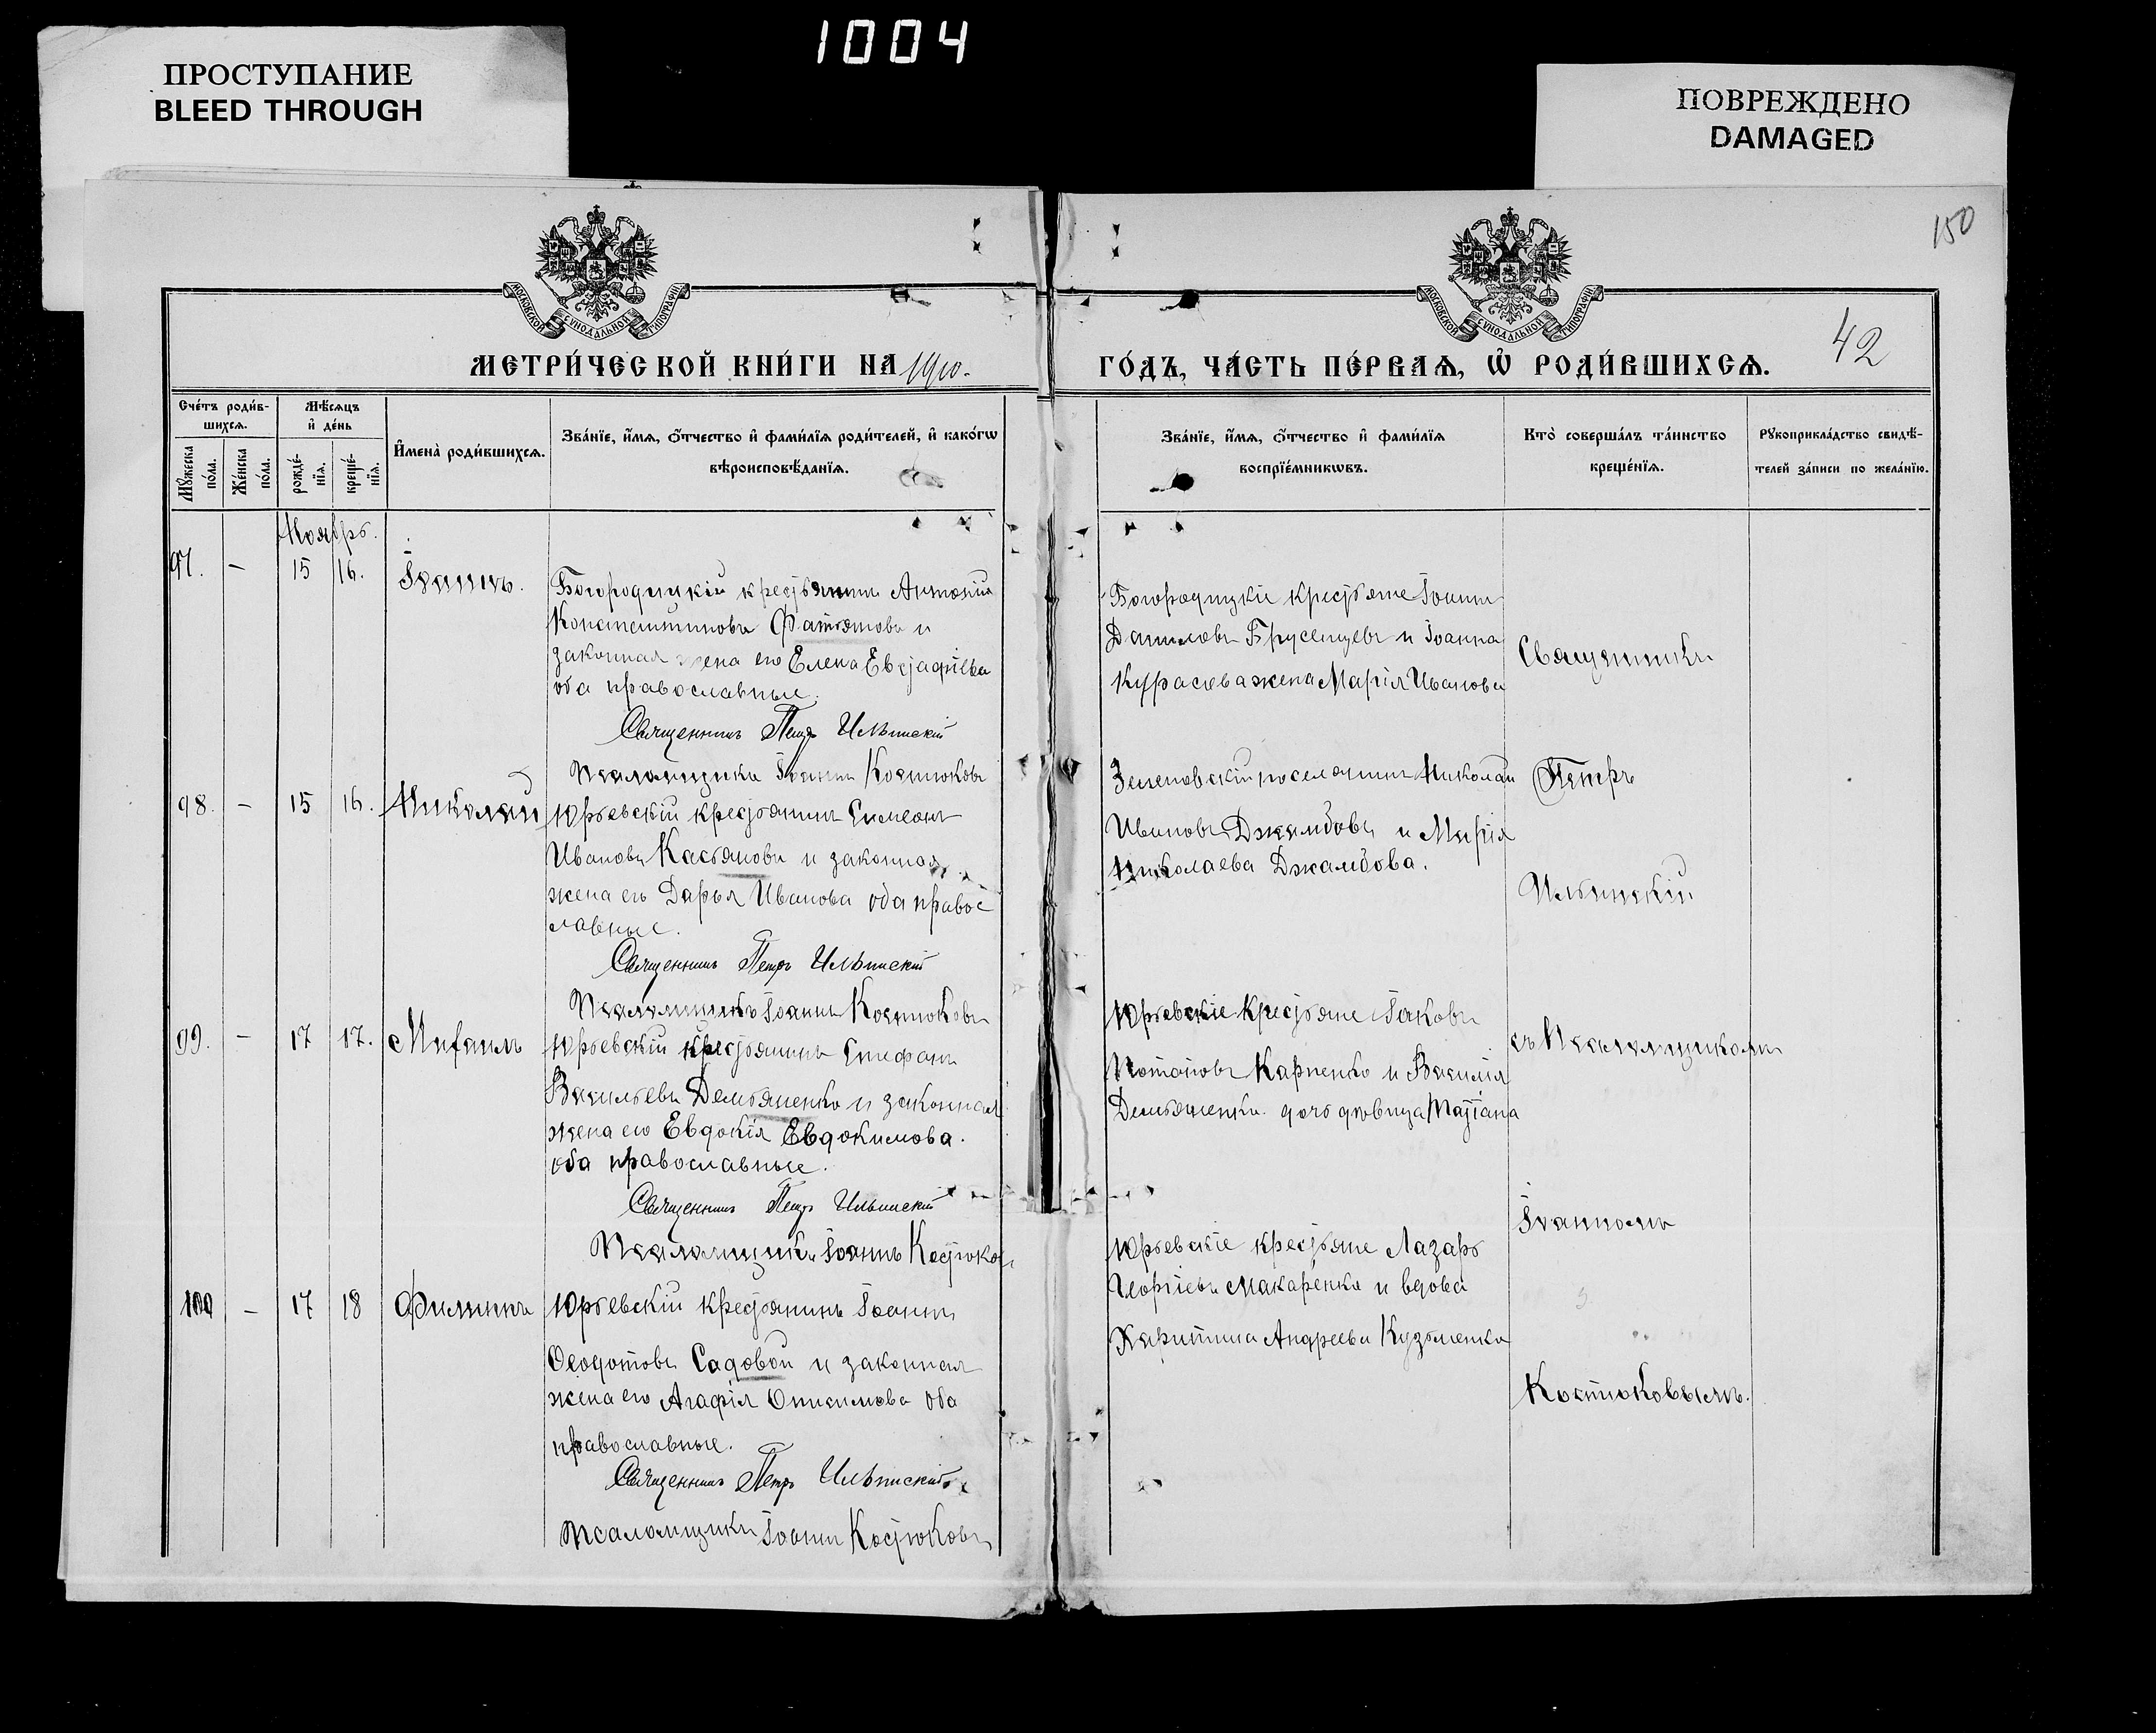 1004
ПРОСТУПАНИЕ
BLEED THROUGH
ПОВРЕЖДЕНО
DAMAGED
150
МОСКОВСКОЙ СѴНОДАЛЬНОЙ ТИПОГРАФІИ
МОСКОВСКОЙ СѴНОДАЛЬНОЙ ТИПОГРАФІИ
42
МЕТРИ́ЧЕСКОЙ КНИ́ГИ НА 1910.
ГО́ДЪ, ЧА́СТЬ ПЕ́РВАѦ, Ѡ҆ РОДИ́ВШИХСѦ.
Сче́тъ роди́в-
шихсѧ.
Мꙋ́жеска по́ла.
Же́нска по́ла.
Мѣ́сѧцъ
и҆ де́нь
рожде́-
нїѧ.
креще́-
нїѧ.
И҆мена̀ роди́вшихсѧ.
Зва́нїе, и҆́мѧ, ѻ҆́тчество и҆ фами́лїѧ роди́телей, и҆ како́гѡ
вѣроисповѣ́данїѧ.
Зва́нїе, и҆́мѧ, ѻ҆́тчество и҆ фами́лїѧ
воспрїе́мникѡвъ.
Кто̀ соверша́лъ та́инство
креще́нїѧ.
Рꙋкоприкла́дство свидѣ́-
телей за́писи по жела́нїю.
Ноябрь.
97. – 15 16. Іоаннъ.
Богородицкій крестьянинъ Антоній
Константиновъ Фатьяновъ и
законная жена его Елена Евстафіева
оба православные.
Священникъ Петръ Ильинскій
Псаломщикъ Іоаннъ Костюковъ
Богородицкіе крестьяне Іоаннъ
Даниловъ Брусенцевъ и Іоанна
Курасова жена Марія Иванова
98. – 15 16. Николай
Юрьевскій крестьянинъ Симеонъ
Ивановъ Касьяновъ и законная
жена его Дарья Иванова оба правос
лавные.
Священникъ Петръ Ильинскій
Псаломщикъ Іоаннъ Костюковъ
поселянинъ Николай
Ивановъ Джамбовъ и Марія
Николаева Джамбова.
99. – 17 17. Михаилъ
Юрьевскій крестьянинъ Стефанъ
Васильевъ Демьяненко и законная
жена его Евдокія Евдокимова.
оба православные.
Священникъ Петръ Ильинскій
Псаломщикъ Іоаннъ Костюковъ
Юрьевскіе крестьяне Іаковъ
Потаповъ Карпенко и Василія
Демьяненка дочь девица Татіана
100 – 17 18 Филиппъ
Юрьевскій крестьянинъ Іоаннъ
Ѳеодотовъ Садовой и законная
жена его Агафія Онисимова оба
православные.
Священникъ Петръ Ильинскій
Псаломщикъ Іоаннъ Костюковъ
Юрьевскіе крестьяне Лазарь
Георгіевъ Макаренко и вдова
Харитина Андреева Кузьменко
Священникъ
Петръ
Ильинскій
съ Псаломщикомъ
Іоанномъ
Костюковымъ.